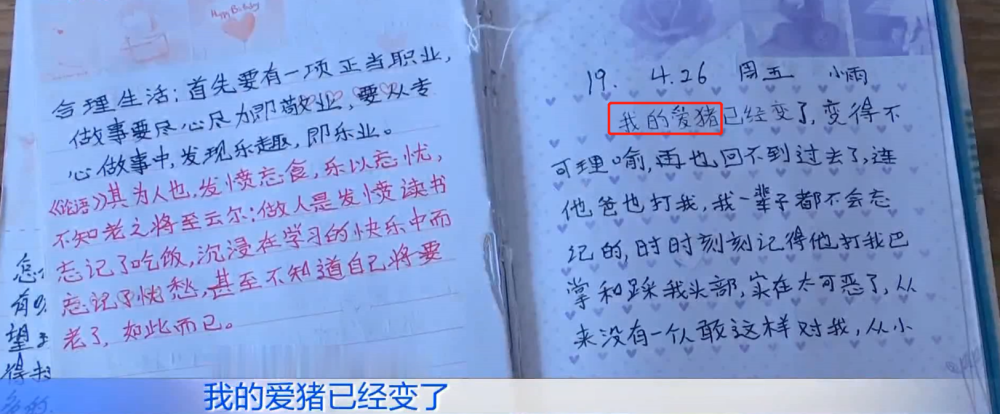 Happy Birthday
合理生活：首先要有一项正当职业，
做事要尽心尽力即敬业，要从专
心做事中，发现乐趣，即乐业。
《论语》其为人也，发愤忘食，乐以忘忧，
不知老之将至云尔：做人是发愤读书
忘记了吃饭，沉浸在学习的快乐中而
忘记了忧愁，甚至不知道自己将要
老了，如此而已。
怎
有
望
得
19. 4.26 周五 小雨
我的爱猪已经变了，变得不
可理喻，再也回不到过去了，连
他爸也打我，我一辈子都不会忘
记的，时时刻刻记得他打我巴
掌和踩我头部，实在太可恶了，从
来没有一个人敢这样对我，从小
我的爱猪已经变了